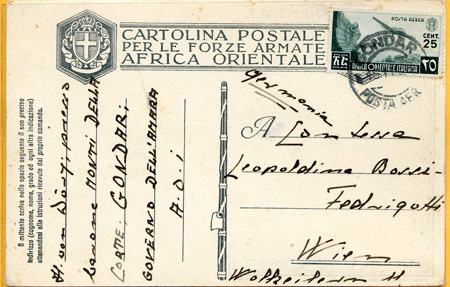 CARTOLINA POSTALE
PER LE FORZE ARMATE
AFRICA ORIENTALE
POSTA AEREA
CENT.
25
AFRICA ORIENTALE ITALIANA
GONDAR
POSTA AER
Il mittente scriva nello spazio seguente il suo preciso
indirizzo (cognome, nome, grado ed ogni altra indicazione)
attenendosi alle istruzioni ricevute dal proprio comando.
H. von
barone MONTI DELLA
CORTE: GONDAR;
GOVERNO DELL'AMARA
A.O.I
Germania
A Contessa
Leopoldina Bossi-
Fedrigotti
Wien
Wollzeile